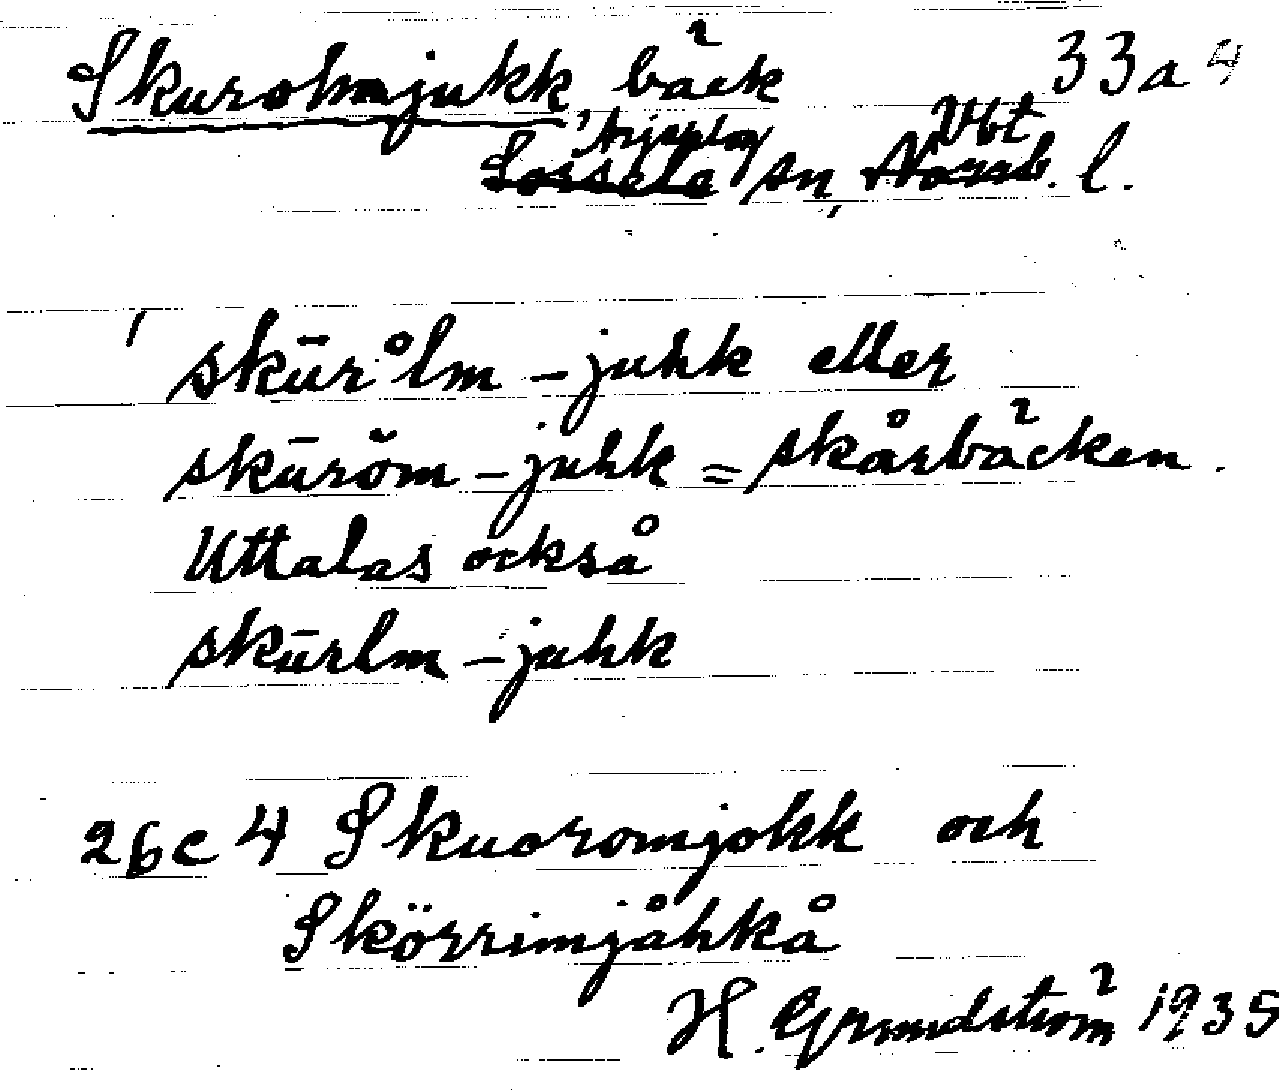 Skurolmjukk, bäck 33a 4
Arjeplog Vbt
Sorsele sn, Norrb. l.
skūrålm-juhk eller
skūrŏm-juhk = skårbäcken.
Uttalas också
skūrlm-juhk
26c 4 Skuoromjokk och
Skörrimjåhkå
H. Grundström 1935